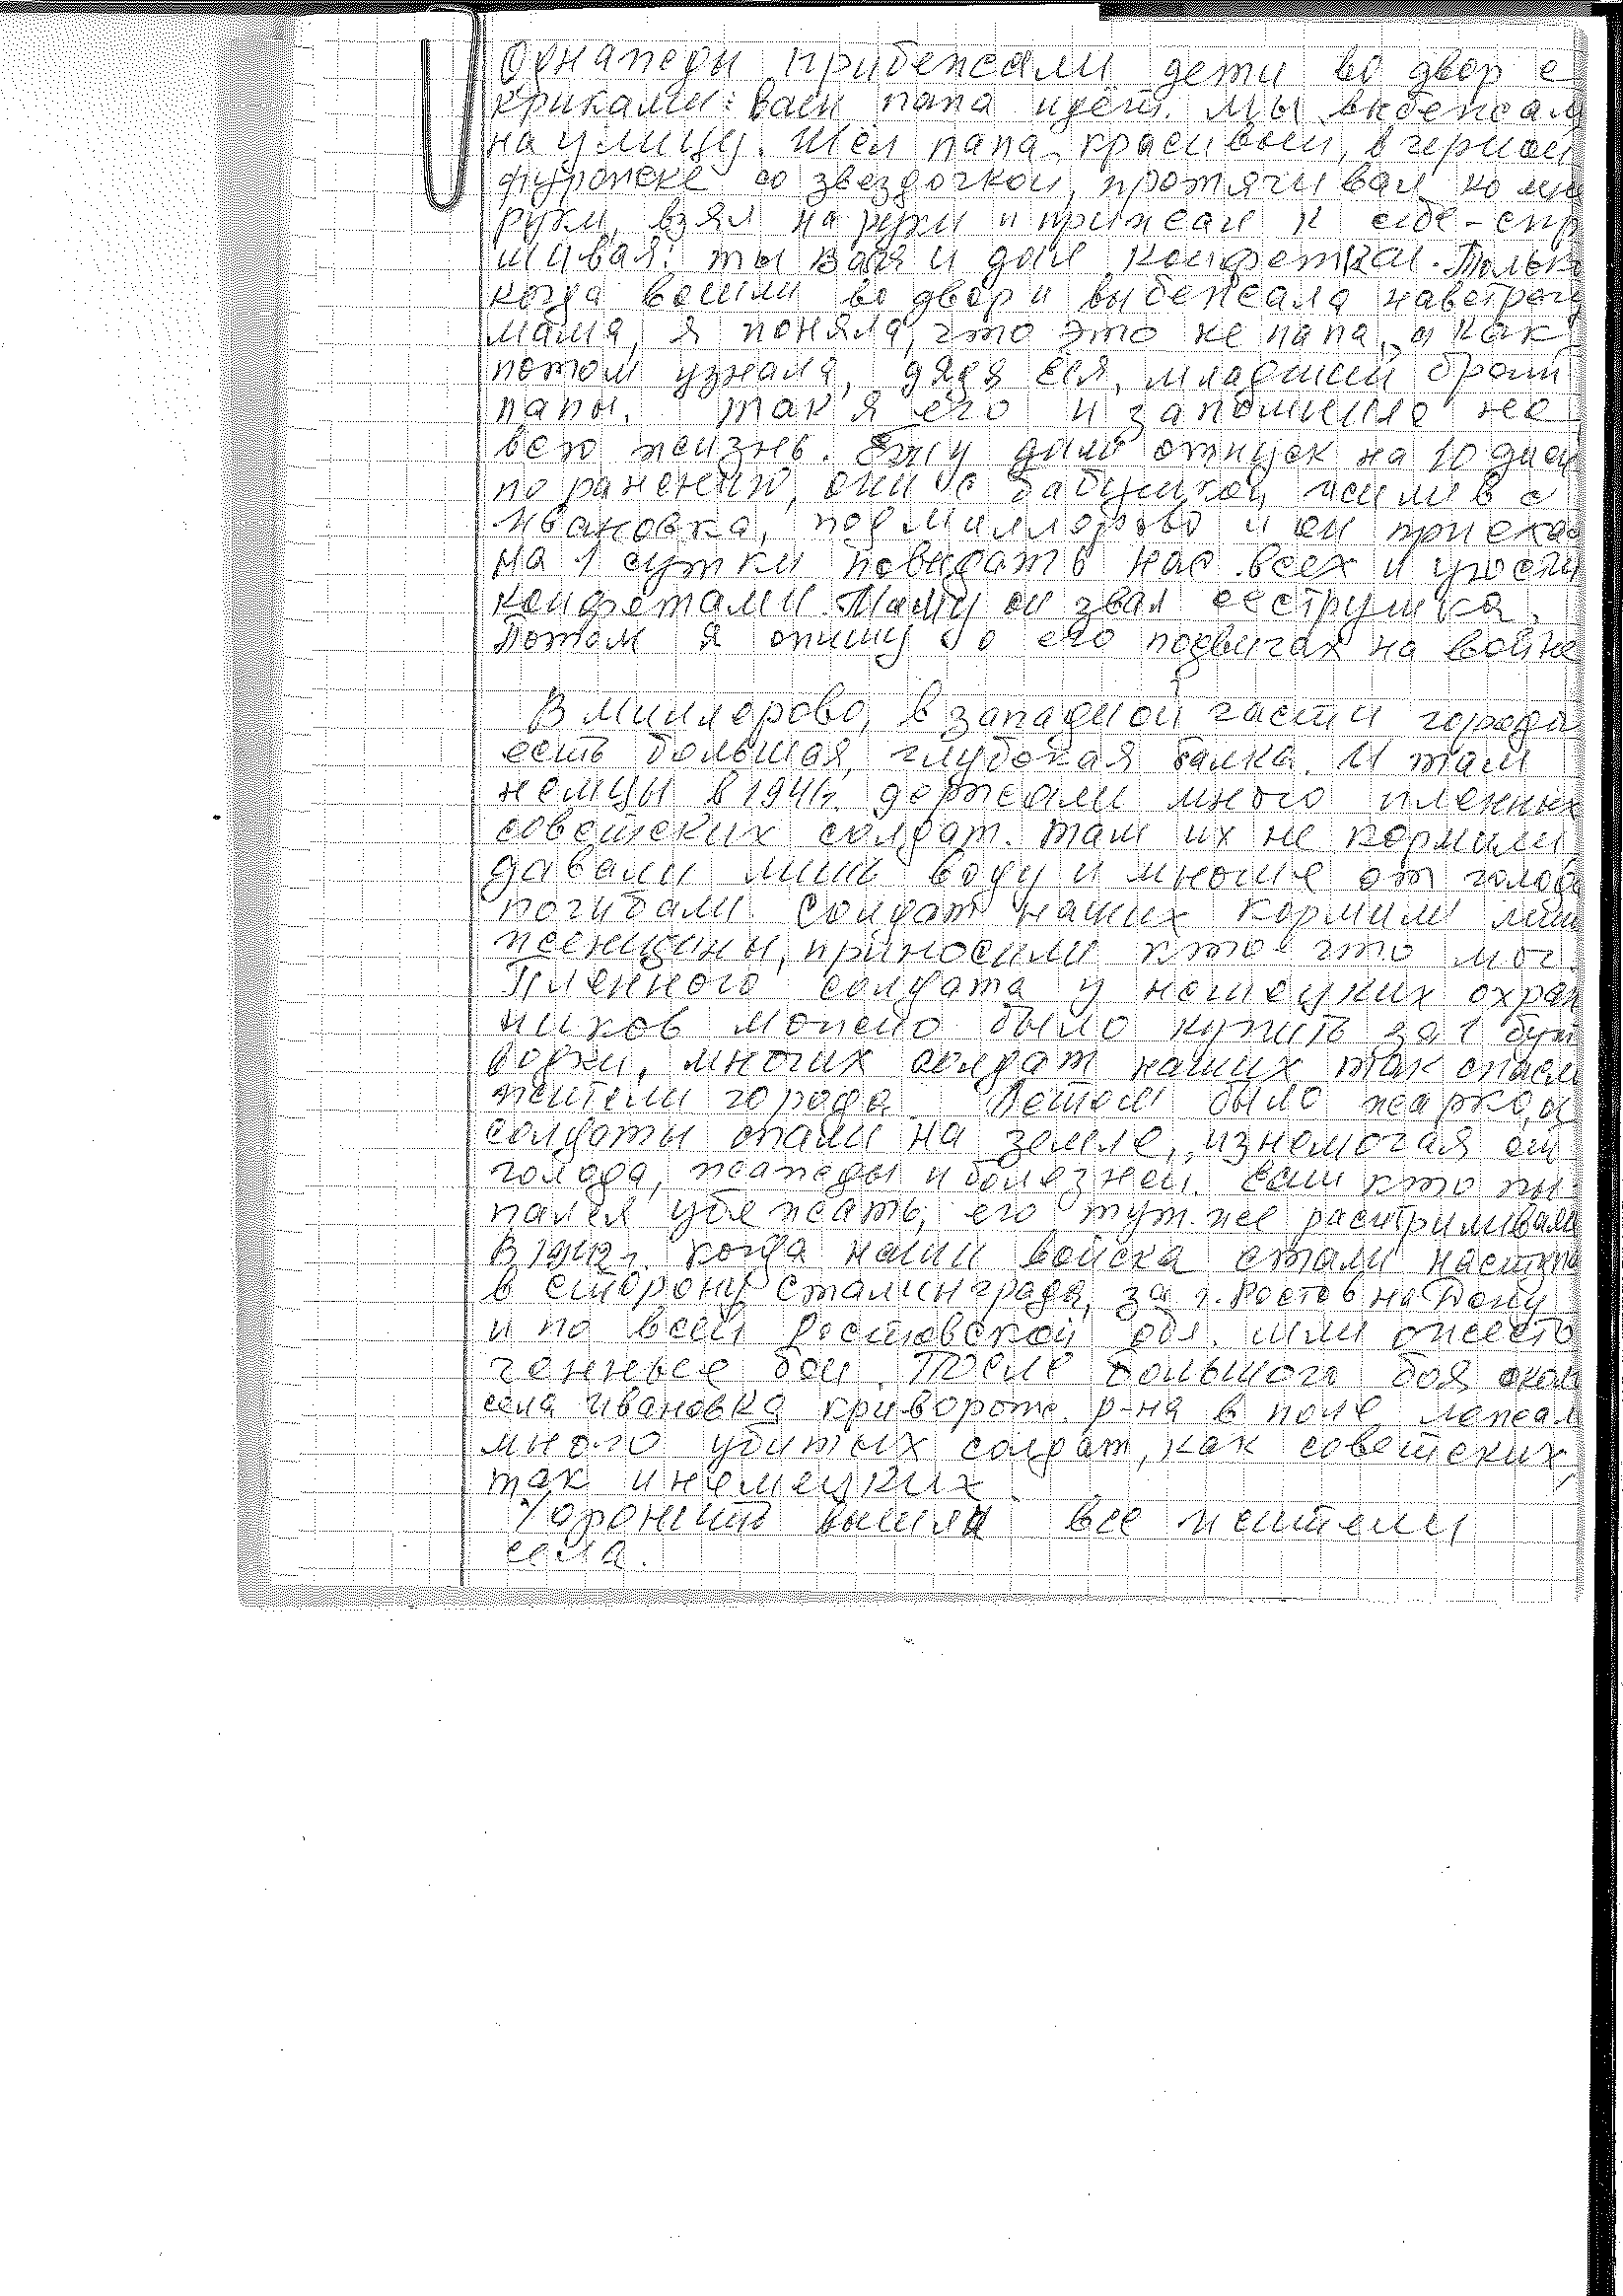 Однажды прибежали дети во двор с
криками: ваш папа идёт. Мы выбежал
на улицу. Шёл папа, красивый, в черной
фуражке со звездочкой, протягивал ко мн
руки, взял на руки и прижал к себе-спр
шивая: ты Валя и дал конфетки. Тольк
когда вошли во двор и выбежала навстречу
мама, я поняла, что это не папа, а как
потом узнала, дядя младший брат
папы. Так я его и запомнила на
всю жизнь. Ему дали отпуск на 10 дней
по ранению, они с бабушкой жили в с
Ивановка, под Миллерово и он приеха
на 1 сутки повидать нас всех и угости
конфетами. Маму он звал сеструшка.
Потом я опишу о его подвигах на войне
В Миллерово, в западной части города
есть большая, глубокая балка. И там
немцы в 1941г. держали много пленных
советских солдат. Там их не кормили
давали лишь воду и многие от голода
погибали. Солдат наших кормили лиш
женщины, приносили кто что мог.
Пленного солдата у немецких охран
ников можно было купить за 1 бут
водки, многих солдат наших так спасли
жители города. Летом было жарко, а
солдаты спали на земле, изнемогая от
голода, жажды и болезней. Если кто пы
тался убежать, его тут же расстреливали
В 1942г. когда наши войска стали наступа
в сторону Сталинграда, за г. Ростов на Дону
и по всей Ростовской обл. шли ожесто
ченные бои. После большого боя окол
села Ивановка Криворож. р-на в поле лежал
много убитых солдат, как советских,
так и немецких.
Хоронить вышли все жители
села.